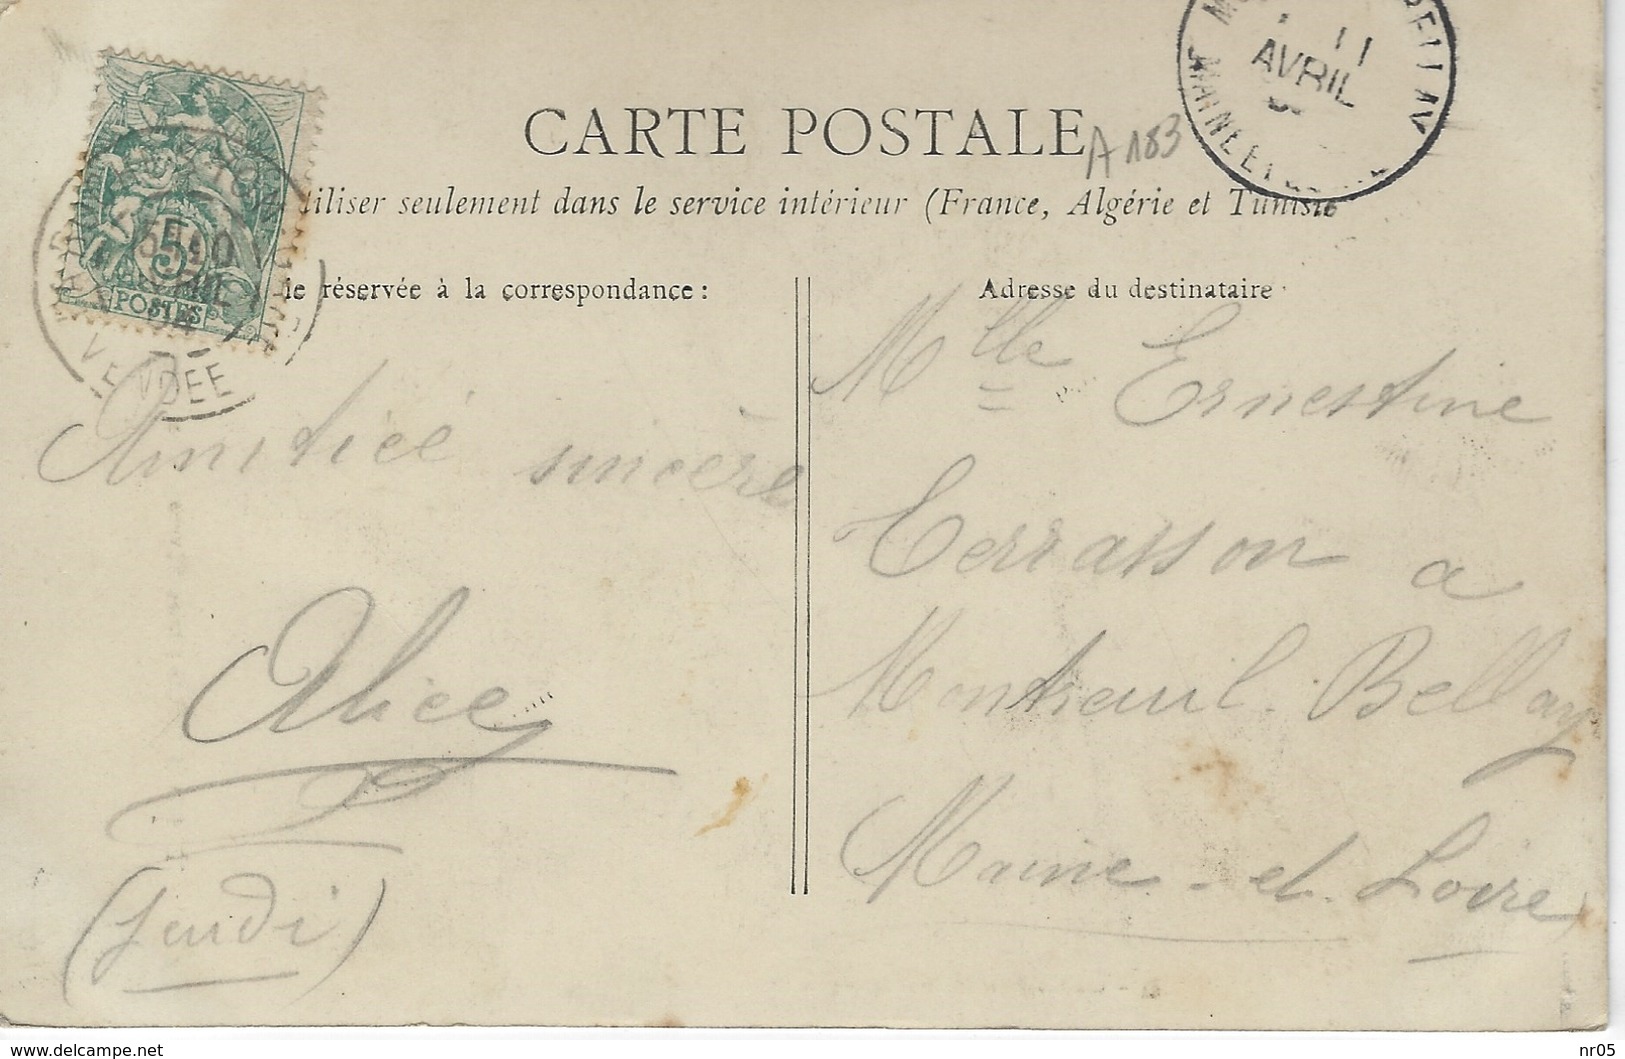 CARTE POSTALE
A 183
tiliser seulement dans le service intérieur (France, Algérie et Tunisie
ie réservée à la correspondance :
Adresse du destinataire
5
POSTES
VENDEE
11
AVRIL
MAINE ET LOIRE
Amitiée sincère
Alice
(Jeudi)
Mlle Ernestine
Terrasson a
Montreuil-Bellay
Maine-et-Loire
www.delcampe.net
nr05